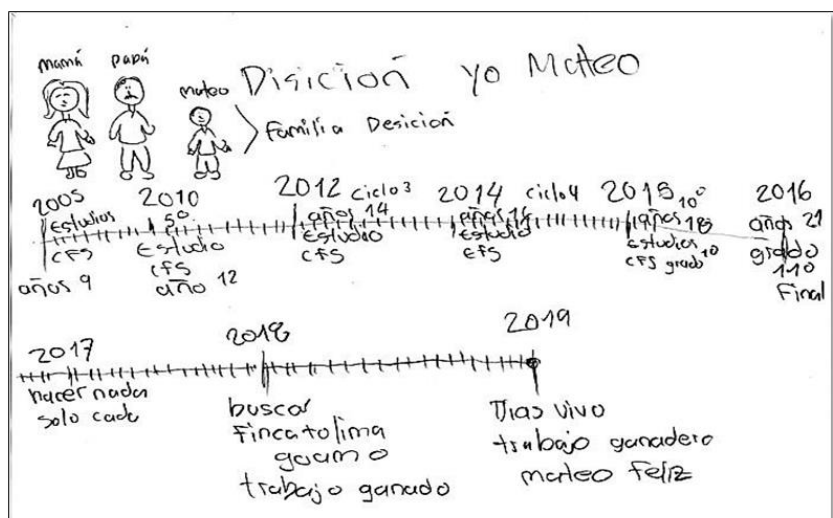 mamá papá mateo
Disición yo Mateo
Familia Desición
2005
Estudios
CFS
años 9
2010
5º
Estudio
cfs
año 12
2012 ciclo 3
años 14
Estudio
CFS
2014 ciclo 4
Estudio
CFS
2015 10º
años 18
Estudios
CFS grado 10
2016
años 21
grado
110
Final
2017
hacer nada
solo
2018
buscar
Finca tolima
guamo
trabajo ganado
2019
Dias vivo
trabajo ganadero
mateo Feliz